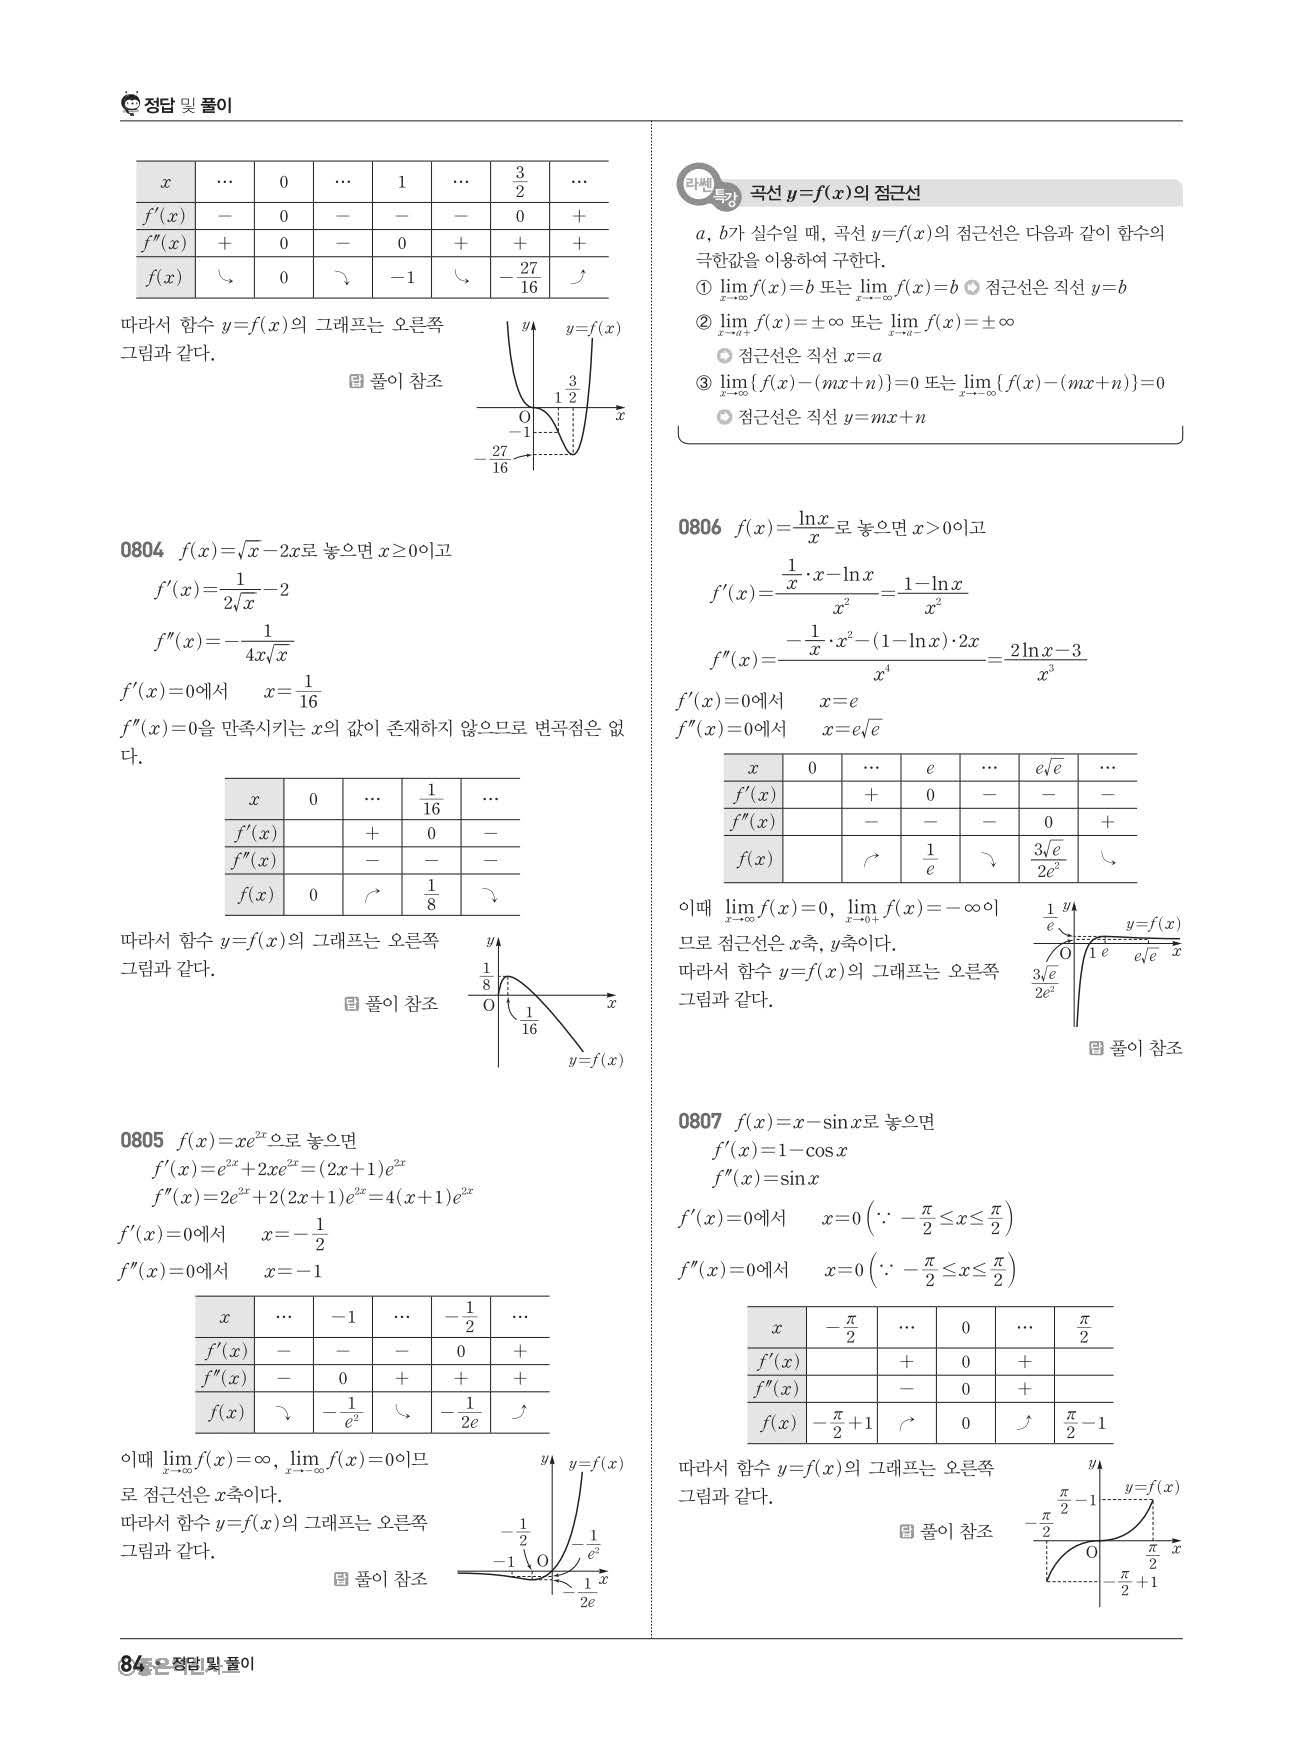 정답 및 풀이
x … 0 … 1 … 3/2 …
f′(x) − 0 − − − 0 +
f″(x) + 0 − 0 + + +
f(x) ⤷ 0 ⤵ −1 ⤷ −27/16 ⤴
따라서 함수 y=f(x)의 그래프는 오른쪽
그림과 같다.
답 풀이 참조
y y=f(x)
1 3/2
O x
−1
−27/16
0804 f(x)=√x−2x로 놓으면 x≥0이고
f′(x)=1/(2√x)−2
f″(x)=−1/(4x√x)
f′(x)=0에서 x=1/16
f″(x)=0을 만족시키는 x의 값이 존재하지 않으므로 변곡점은 없
다.
x 0 … 1/16 …
f′(x) + 0 −
f″(x) − − −
f(x) 0 ⤴ 1/8 ⤵
따라서 함수 y=f(x)의 그래프는 오른쪽
그림과 같다.
답 풀이 참조
y
1/8
O x
1/16
y=f(x)
0805 f(x)=xe²ˣ으로 놓으면
f′(x)=e²ˣ+2xe²ˣ=(2x+1)e²ˣ
f″(x)=2e²ˣ+2(2x+1)e²ˣ=4(x+1)e²ˣ
f′(x)=0에서 x=−1/2
f″(x)=0에서 x=−1
x … −1 … −1/2 …
f′(x) − − − 0 +
f″(x) − 0 + + +
f(x) ⤵ −1/e² ⤷ −1/2e ⤴
이때 lim(x→∞) f(x)=∞, lim(x→−∞) f(x)=0이므
로 점근선은 x축이다.
따라서 함수 y=f(x)의 그래프는 오른쪽
그림과 같다.
답 풀이 참조
y y=f(x)
−1/2 −1/e²
−1 O x
−1/2e
라쎈 특강 곡선 y=f(x)의 점근선
a, b가 실수일 때, 곡선 y=f(x)의 점근선은 다음과 같이 함수의
극한값을 이용하여 구한다.
① lim(x→∞) f(x)=b 또는 lim(x→−∞) f(x)=b ➡ 점근선은 직선 y=b
② lim(x→a+) f(x)=±∞ 또는 lim(x→a−) f(x)=±∞
➡ 점근선은 직선 x=a
③ lim(x→∞){f(x)−(mx+n)}=0 또는 lim(x→−∞){f(x)−(mx+n)}=0
➡ 점근선은 직선 y=mx+n
0806 f(x)=ln x/x로 놓으면 x>0이고
f′(x)=(1/x·x−ln x)/x²=(1−ln x)/x²
f″(x)=(−1/x·x²−(1−ln x)·2x)/x⁴=(2 ln x−3)/x³
f′(x)=0에서 x=e
f″(x)=0에서 x=e√e
x 0 … e … e√e …
f′(x) + 0 − − −
f″(x) − − − 0 +
f(x) ⤴ 1/e ⤵ 3√e/2e² ⤷
이때 lim(x→∞) f(x)=0, lim(x→0+) f(x)=−∞이
므로 점근선은 x축, y축이다.
따라서 함수 y=f(x)의 그래프는 오른쪽
그림과 같다.
1/e y y=f(x)
O 1 e e√e x
3√e/2e²
답 풀이 참조
0807 f(x)=x−sin x로 놓으면
f′(x)=1−cos x
f″(x)=sin x
f′(x)=0에서 x=0 (∵ −π/2≤x≤π/2)
f″(x)=0에서 x=0 (∵ −π/2≤x≤π/2)
x −π/2 … 0 … π/2
f′(x) + 0 +
f″(x) − 0 +
f(x) −π/2+1 ⤴ 0 ⤴ π/2−1
따라서 함수 y=f(x)의 그래프는 오른쪽
그림과 같다.
답 풀이 참조
y
π/2−1 y=f(x)
−π/2
O π/2 x
−π/2+1
84 • 정답 및 풀이